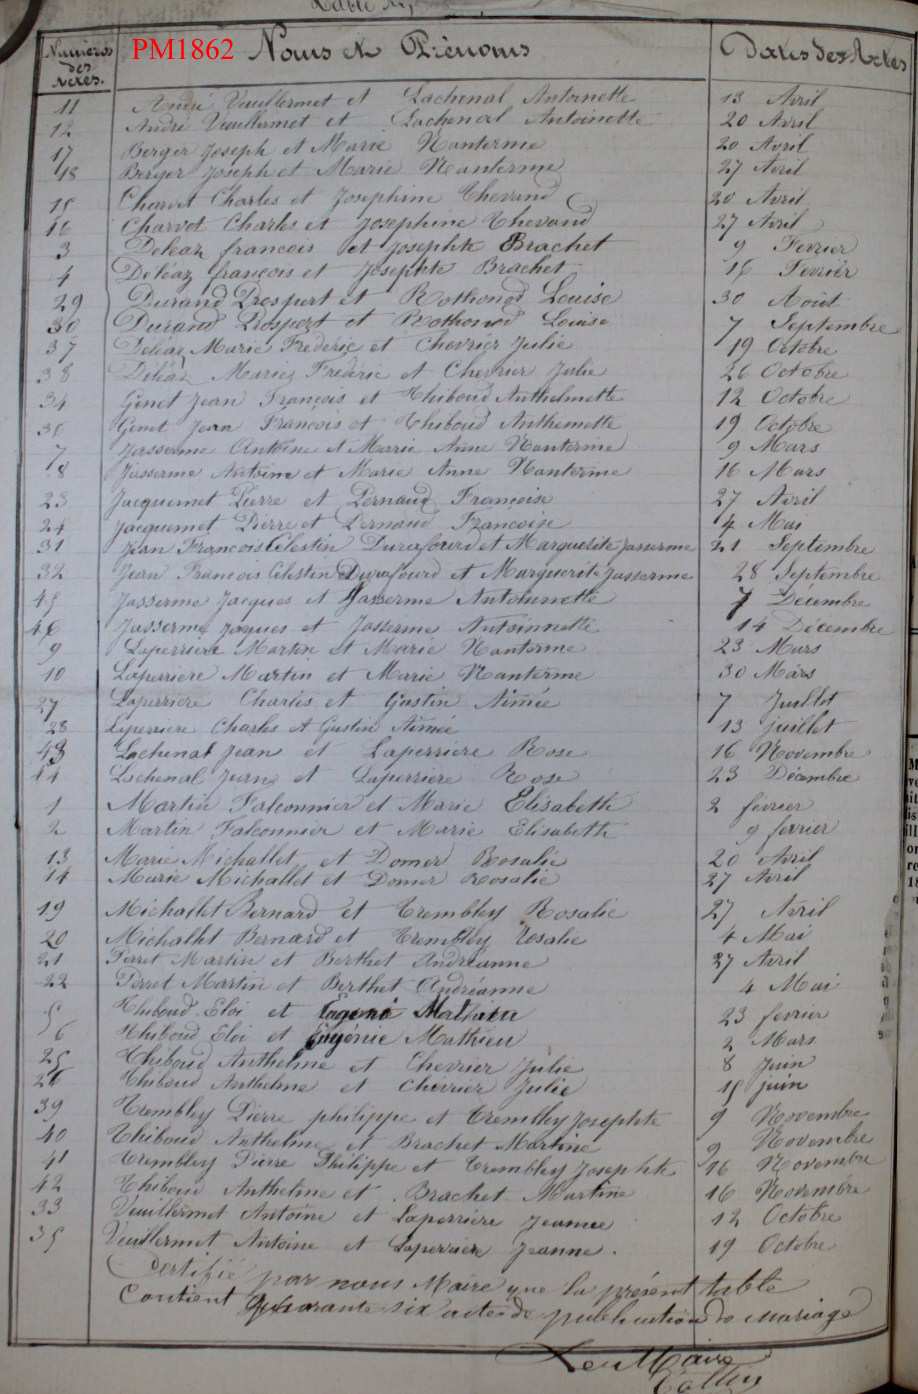 Table
Numéros des Actes. PM1862 Noms et Prénoms Dates des Actes
11 André Vuillermet et Lachenal Antoinette 13 Avril
12 André Vuillermet et Lachenal Antoinette 20 Avril
17 Berger Joseph et Marie Nanterme 20 Avril
18 Berger Joseph et Marie Nanterme 27 Avril
15 Charvet Charles et Josephine Thevand 20 Avril
16 Charvot Charles et Josephine Thevand 27 Avril
3 Deléaz francois et Josephte Brachet 9 Fevrier
4 Deléaz françois et Josephte Brachet 16 Fevriér
29 Durand Prospert et Rothonod Louise 30 Août
30 Durand Prospert et Rothonod Louise 7 Septembre
37 Deléaz Marie Frederic et Chevrier Julie 19 Octobre
38 Déléaz Marie Frederic et Chevrier Julie 26 Octobre
34 Genet Jean François et Thiboud Anthelmette 12 Octobre
36 Genet Jean François et Thiboud Anthemette 19 Octobre
7 Jasserme Antoine et Marie Anne Nanterme 9 Mars
8 Jasserme Antoine et Marie Anne Nanterme 16 Mars
23 Jacquemet Pierre et Pernaud Françoise 27 Avril
24 Jacquemet Pierre et Pernaud Françoise 4 Mai
31 Jean François Célestin Durafourd et Marguerite Jasserme 21 Septembre
32 Jean Francois Célestin Durafourd et Marguerite Jasserme 28 Septembre
45 Jasserme Jacques et Jasserme Antoinnette 7 Decembre
46 Jasserme Jaques et Jasserme Antoinnette 14 Décembre
9 Laperriere Martin et Marie Nanterme 23 Mars
10 Laperriere Martin et Marie Nanterme 30 Mars
27 Laperriere Charles et Gustin Aimée 7 Juillet
28 Leperriere Charles et Gustin Aimée 13 juillet
43 Lachenal Jean et Laperriere Rose 16 Novembre
44 Lachenal Jean et Laperriere Rose 23 Décembre
1 Martin Falconnier et Marie Elisabeth 2 fevrier
2 Martin Falconnier et Marie Elisabeth 9 fevrier
13 Marie Michallet et Domer Rosalie 20 Avril
14 Marie Michallet et Domer Rosalie 27 Avril
19 Michallet Bernard et Trembley Rosalie 27 Avril
20 Michallet Bernard et Trembley Rosalie 4 Mai
21 Perret Martin et Berthet Andréanne 27 Avril
22 Perret Martin et Berthet Andréanne 4 Mai
5 Thiboud Eloi et Eugénie Mathieu 23 fevrier
6 Thiboud Eloi et Eugénie Mathieu 2 Mars
25 Thiboud Anthelme et Chevrier Julie 8 Juin
26 Thiboud Anthelme et Chevrier Julie 15 juin
39 Trembley Pierre philippe et Trembley Josephte 9 Novembre
40 Thiboud Anthelme et Brachet Martine 9 Novembre
41 Trembley Pierre Philippe et Trembley Josephte 16 Novembre
42 Thiboud Anthelme et Brachet Martine 16 Novembre
33 Vuillermet Antoine et Laperriere Jeanne 12 Octobre
35 Vuillermet Antoine et Laperriere Jeanne. 19 Octobre
Certifié par nous Maire que la présent table
Contient Quarante six actes de publication de mariage
Le Maire